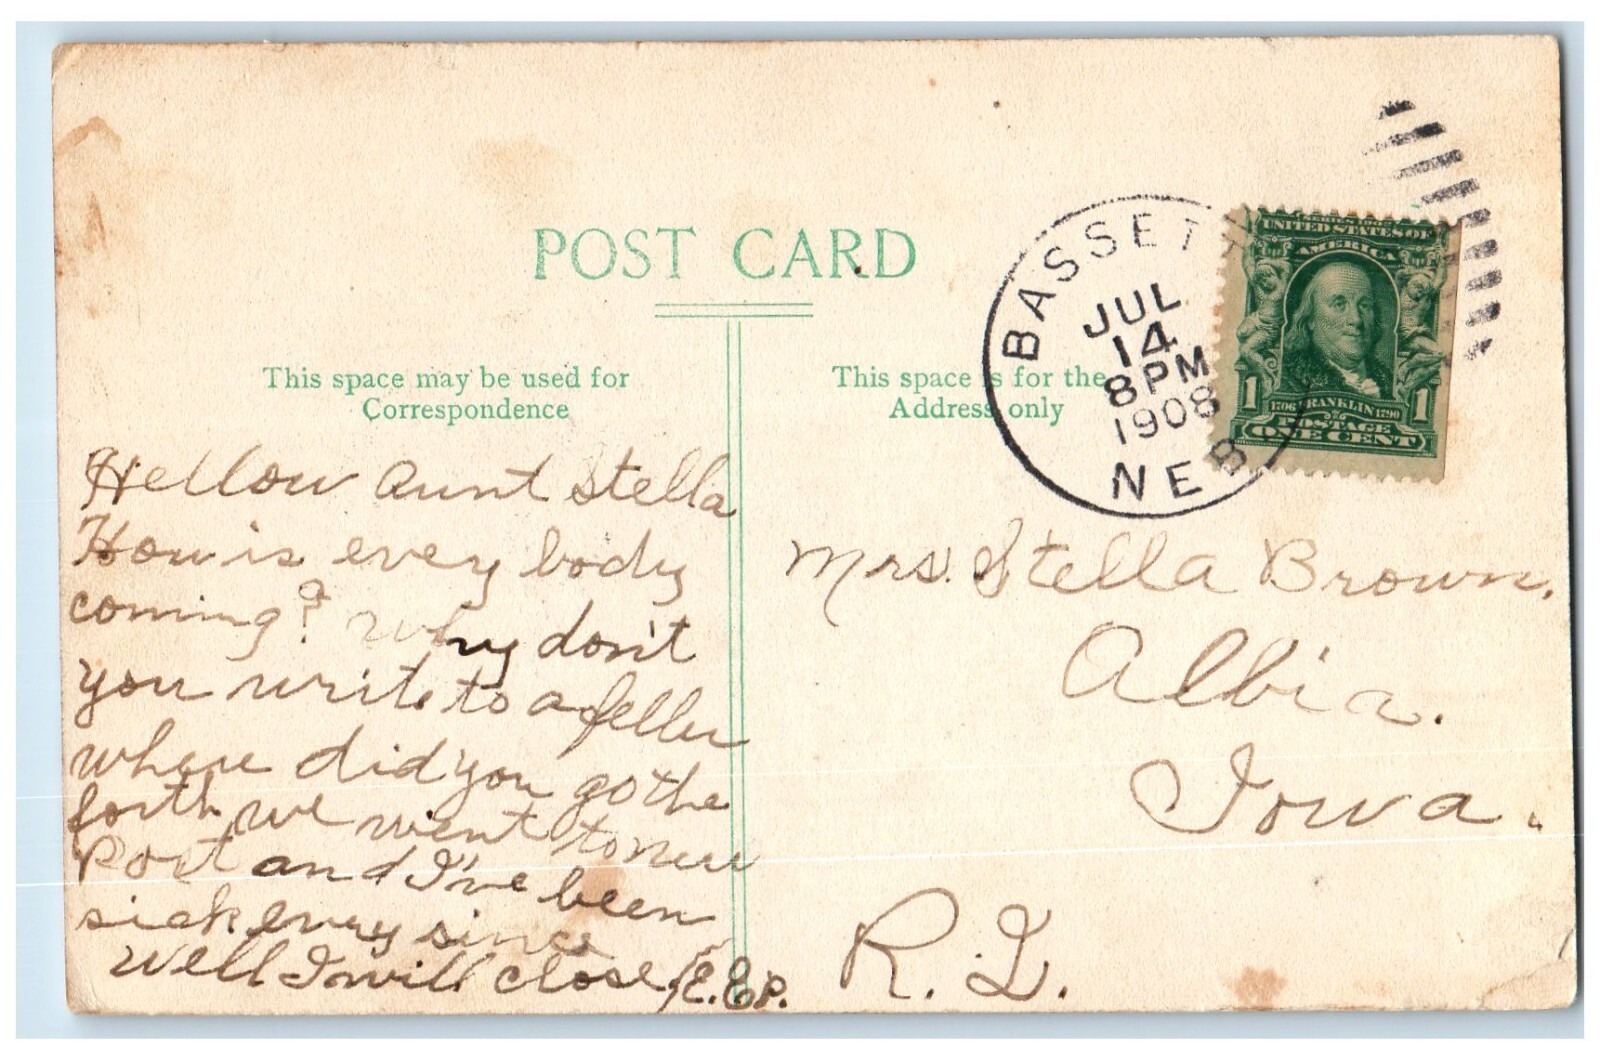 POST CARD
This space may be used for
Correspondence
This space is for the
Address only
BASSETT
JUL
14
8PM
1908
NEB
UNITED STATES OF
AMERICA
1 1706 FRANKLIN 1790 1
POSTAGE
ONE CENT
Hellow Aunt Stella
How is every body
coming? Why don't
you write to a feller
where did you go the
forth we went to new
Port and I've been
sick every since
Well I will close, E.E.P.
Mrs. Stella Brown.
Albia.
Iowa.
R.